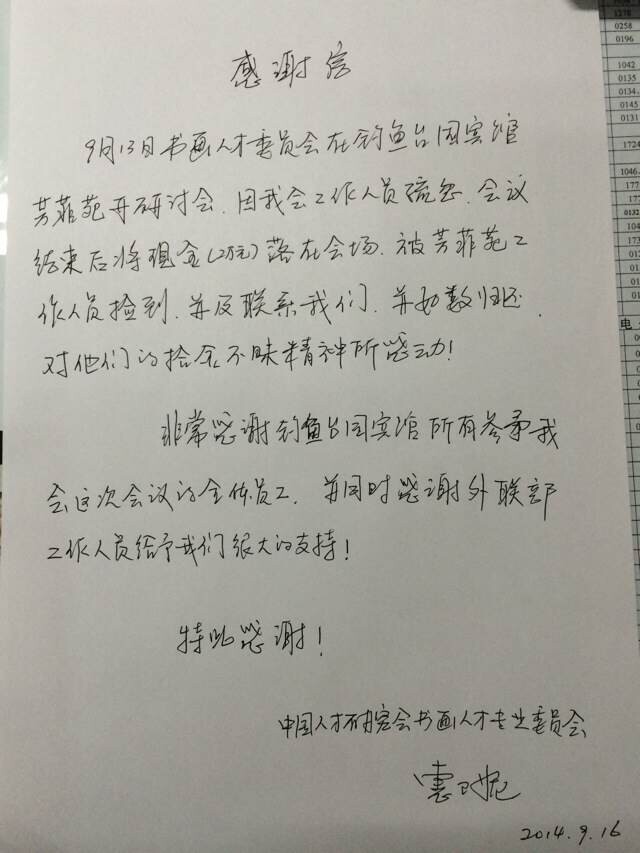 感谢信
9月13日书画人才委员会在钓鱼台国宾馆
芳菲苑开研讨会.因我会工作人员疏忽.会议
结束后将现金(2万元)落在会场.被芳菲苑工
作人员捡到.并及联系我们.并如数归还.
对他们的拾金不昧精神所感动!
非常感谢钓鱼台国宾馆所有参予我
会这次会议的全体员工.并同时感谢外联部
工作人员给予我们很大的支持!
特此感谢!
中国人才研究会书画人才专业委员会
2014.9.16
0258
0196
1042
0135
0134.
0145
0131
1724
1046.
177
177
0132
104
012
013
015
015
电